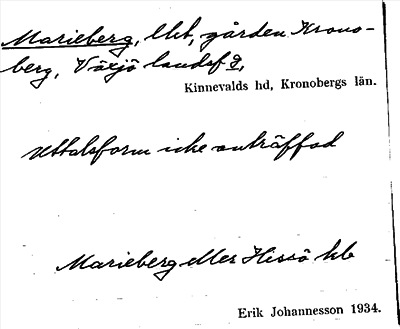 Marieberg, lht, gården Krono-
berg, Växjö landsf g,
Kinnevalds hd, Kronobergs län.
uttalsform icke anträffad
Marieberg eller Hissö hb
Erik Johannesson 1934.